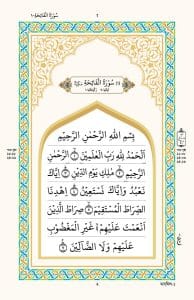 سُوْرَةُ الْفَاتِحَة ١
٢
سُوْرَةُ الْفَاتِحَةِ مَكِّيَّةٌ
بِسْمِ اللّٰهِ الرَّحْمٰنِ الرَّحِيْمِ
اَلْحَمْدُ لِلّٰهِ رَبِّ الْعٰلَمِيْنَ ۝١ الرَّحْمٰنِ
الرَّحِيْمِ ۝٢ مٰلِكِ يَوْمِ الدِّيْنِ ۝٣ اِيَّاكَ
نَعْبُدُ وَاِيَّاكَ نَسْتَعِيْنُ ۝٤ اِهْدِنَا
الصِّرَاطَ الْمُسْتَقِيْمَ ۝٥ صِرَاطَ الَّذِيْنَ
اَنْعَمْتَ عَلَيْهِمْ ۝٦ غَيْرِ الْمَغْضُوْبِ
عَلَيْهِمْ وَلَا الضَّآلِّيْنَ ۝٧